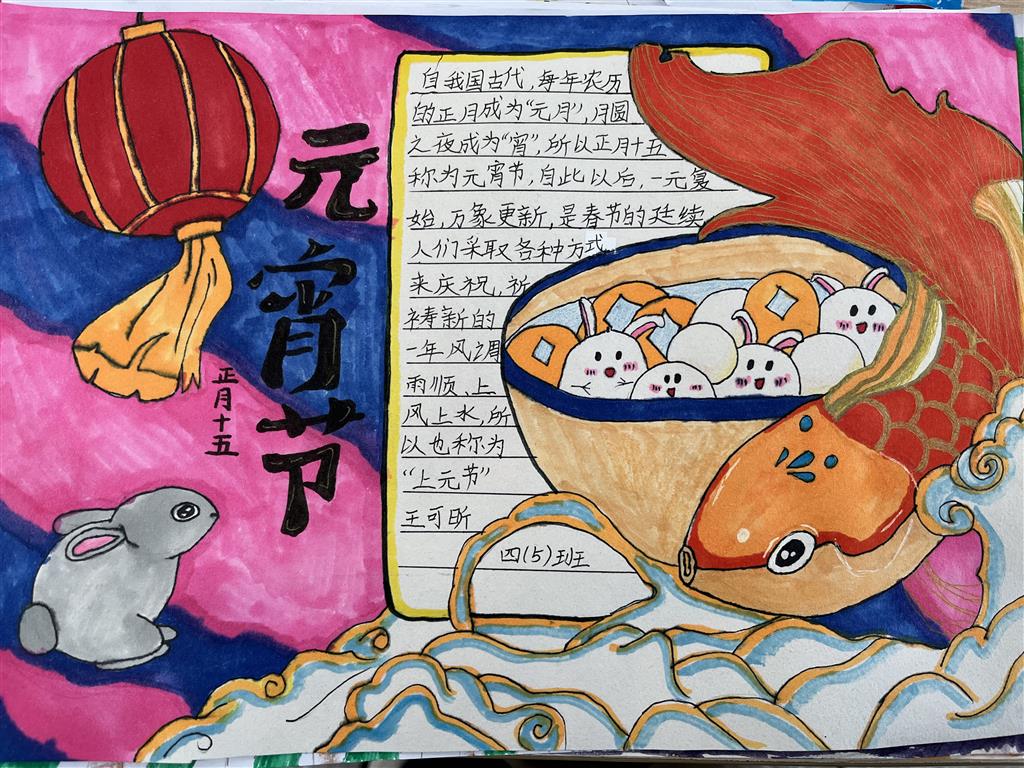 元宵节
正月十五
自我国古代，每年农历
的正月成为“元月”，月圆
之夜成为“宵”，所以正月十五
称为元宵节，自此以后，一元复
始，万象更新，是春节的延续
人们采取各种方式
来庆祝，祈
祷新的
一年风调
雨顺、上
风上水，所
以也称为
“上元节”
王可昕
四（5）班